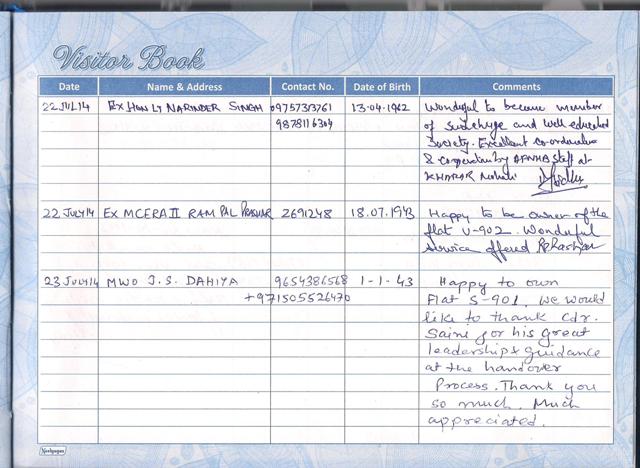 Visitor Book
Date Name & Address Contact No. Date of Birth Comments
22 JUL 14 EX HON LT NARINDER SINGH 13-04-1962 Wonderful to become member
9878116304 of such huge and well educated
Society. Excellent co-ordination
& cooperation by AFNHB Staff at
KHARAR Mohali
22 JULY 14 EX MCERA II RAM PAL 2691248 18.07.1943 Happy to be owner of the
flat U-902. Wonderful
service offered
23 JULY 14 MWO J.S. DAHIYA 9654386568 1-1-43 Happy to own
+971505526470 Flat S-901. We would
like to thank Cdr.
Saini for his great
leadership & guidance
at the handover
Process. Thank you
so much. Much
appreciated.
Neelgagan